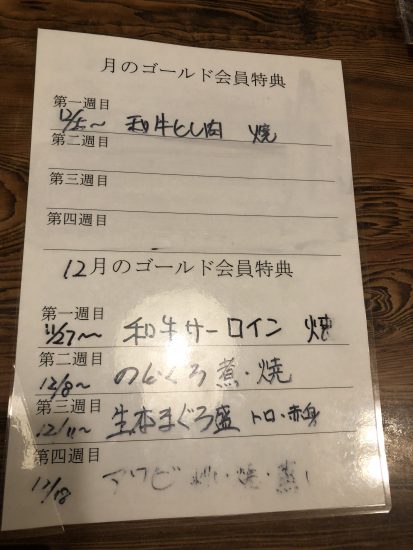 月のゴールド会員特典
第一週目
12/5〜 和牛ヒレ肉 焼
第二週目
第三週目
第四週目
12月のゴールド会員特典
第一週目
11/27〜 和牛サーロイン 焼
第二週目
12/8〜 のどぐろ 煮・焼
第三週目
12/11〜 生本まぐろ盛 トロ・赤身
第四週目
12/18 アワビ 焼・蒸し